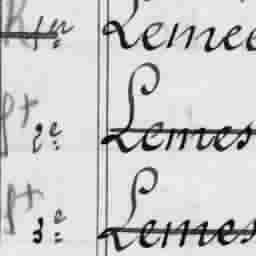 1er Lemee
ft 2e Lemes
ft 3e Lemes